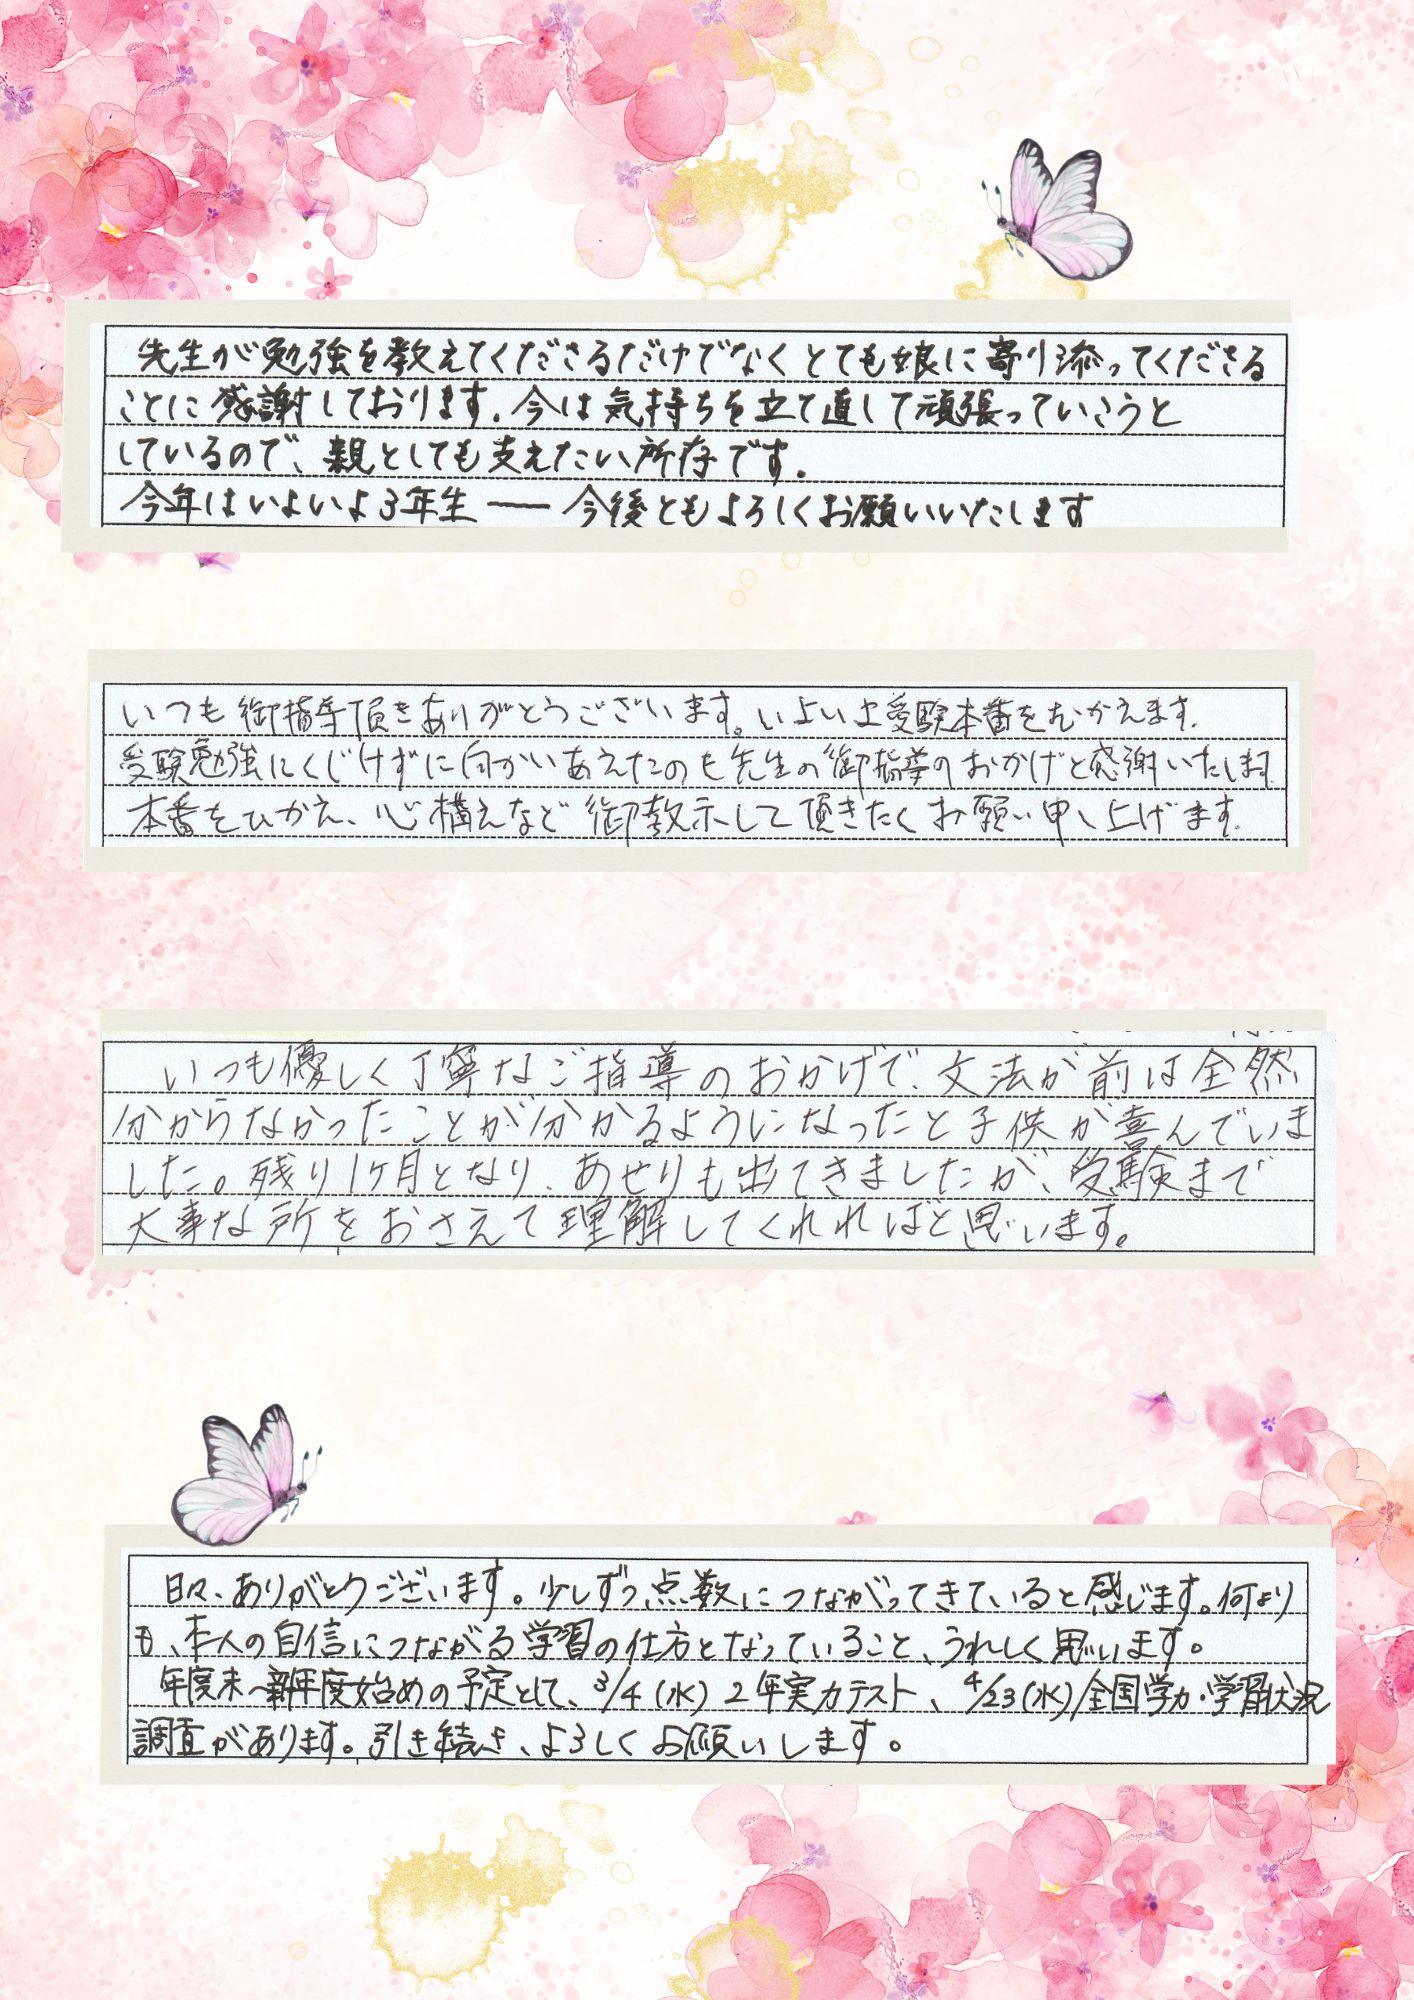 先生が勉強を教えてくださるだけでなくとても娘に寄り添ってくださる
ことに感謝しております。今は気持ちを立て直して頑張っていこうと
しているので、親としても支えたい所存です。
今年はいよいよ3年生 ― 今後ともよろしくお願いいたします
いつも御指導頂きありがとうございます。いよいよ受験本番をむかえます。
受験勉強にくじけずに向かいあえたのも先生の御指導のおかげと感謝いたします。
本番をひかえ、心構えなど御教示して頂きたくお願い申し上げます。
いつも優しく丁寧なご指導のおかげで、文法が前は全然
分からなかったことが分かるようになったと子供が喜んでいま
した。残り1ヶ月となり、あせりも出てきましたが、受験まで
大事な所をおさえて理解してくれればと思います。
日々、ありがとうございます。少しずつ点数につながってきていると感じます。何より
も、本人の自信につながる学習の仕方となっていること、うれしく思います。
年度末〜新年度始めの予定として、3/4(水)2年実力テスト、4/23(水)全国学力・学習状況
調査があります。引き続き、よろしくお願いします。